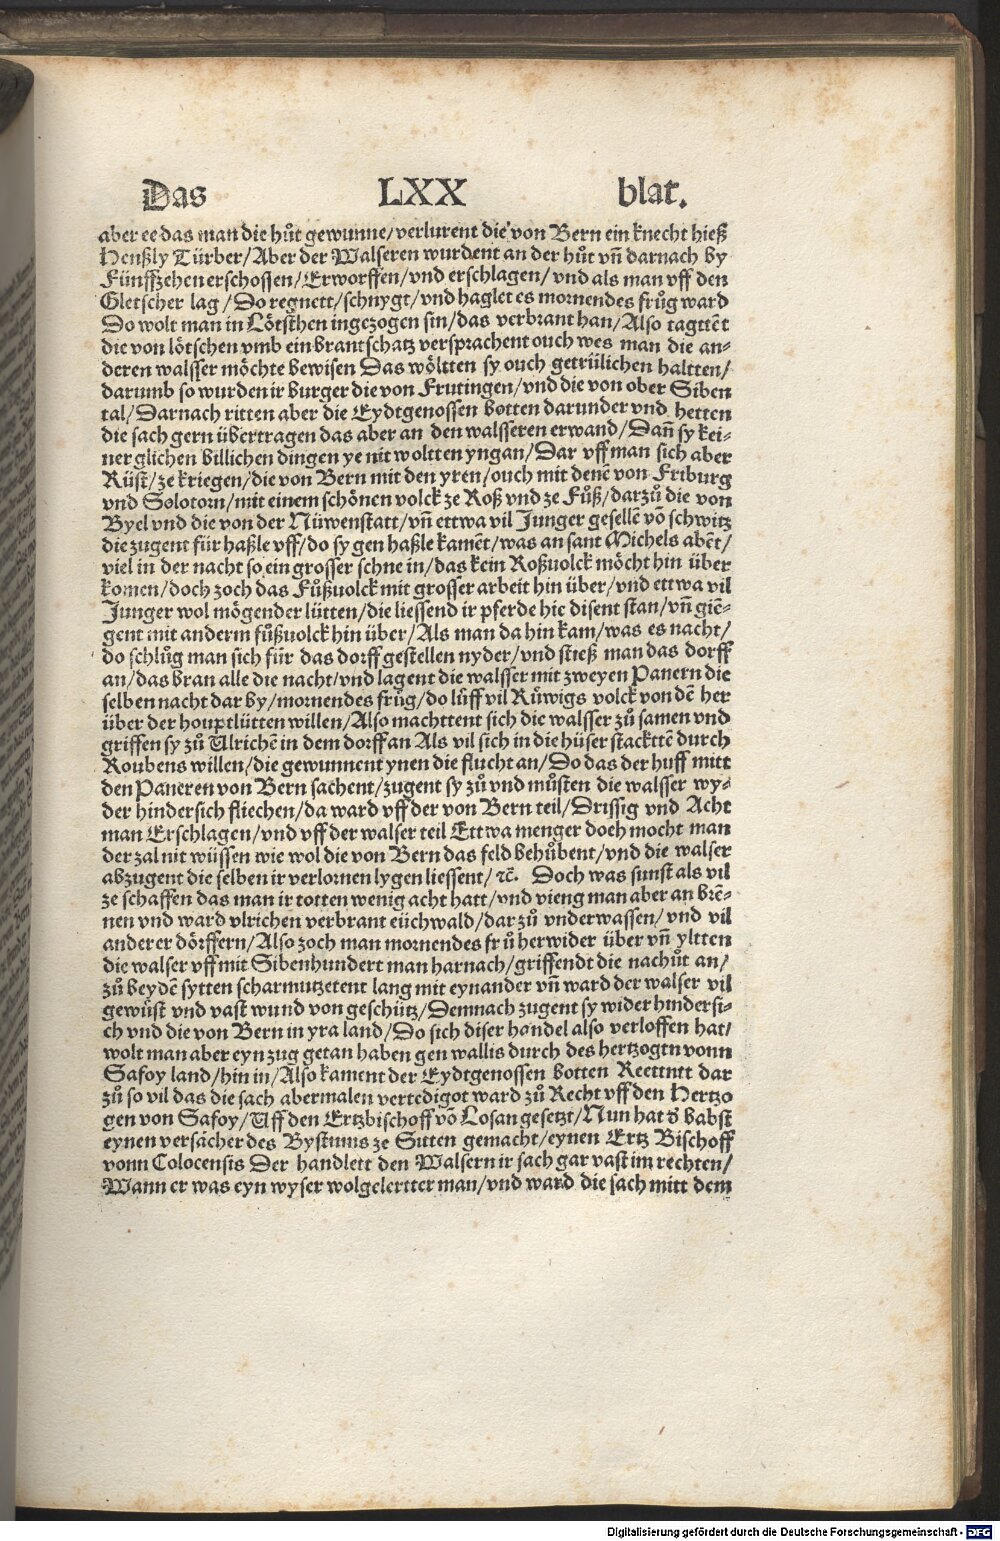 Das LXX blat.
aber ee das man die hůt gewunne/verlurent die von Bern ein knecht hieß
Henßly Türber/Aber der Walseren wurdent an der hůt vn̄ darnach by
Fünffzehen erschossen/Erworffen/vnd erschlagen/vnd als man vff den
Gletscher lag/Do regnett/schnygt/vnd haglet es mornendes frůg ward
Do wolt man in Lötschen ingezogen sin/das verbrant han/Also tagttēt
die von lötschen vmb ein brantschatz versprachent ouch wes man die an⸗
deren walsser möchte bewisen Das wöltten sy ouch getrülichen haltten/
darumb so wurden ir burger die von Frutingen/vnd die von ober Siben
tal/Darnach ritten aber die Eydtgenossen botten darunder vnd hetten
die sach gern übertragen das aber an den walsseren erwand/Dan̄ sy kei⸗
ner glichen billichen dingen ye nit woltten yngan/Dar vff man sich aber
Rüst/ze kriegen/die von Bern mit den yren/ouch mit denē von Friburg
vnd Solotorn/mit einem schönen volck ze Roß vnd ze Fůß/darzů die von
Byel vnd die von der Nüwenstatt/vn̄ ettwa vil Junger gesellē vō schwitz
die zugent für haßle vff/do sy gen haßle kamēt/was an sant Michels abēt/
viel in der nacht so ein grosser schne in/das kein Roßuolck möcht hin über
komen/doch zoch das Fůßuolck mit grosser arbeit hin über/vnd ettwa vil
Junger wol mögender lütten/die liessend ir pferde hie disent stan/vn̄ giē⸗
gent mit anderm fůßuolck hin über/Als man da hin kam/was es nacht/
do schlůg man sich für das dorff gestellen nyder/vnd stieß man das dorff
an/das bran alle die nacht/vnd lagent die walsser mit zweyen Panern die
selben nacht dar by/mornendes frůg/do lüff vil Rüwigs volck von dē her
über der houptlütten willen/Also machttent sich die walsser zů samen vnd
griffen sy zů Ulrichē in dem dorff an Als vil sich in die hüser stackttē durch
Roubens willen/die gewunnent ynen die flucht an/Do das der huff mitt
den Paneren von Bern sachent/zugent sy zů vnd můsten die walsser wy⸗
der hindersich fliechen/da ward vff der von Bern teil/Drissig vnd Acht
man Erschlagen/vnd vff der walser teil Ettwa menger doch mocht man
der zal nit wüssen wie wol die von Bern das feld behůbent/vnd die walser
abzugent die selben ir verlornen lygen liessent/⁊c̄. Doch was sunst als vil
ze schaffen das man ir totten wenig acht hatt/vnd vieng man aber an brē⸗
nen vnd ward vlrichen verbrant eüchwald/dar zů vnderwassen/vnd vil
anderer dörffern/Also zoch man mornendes frů herwider über vn̄ yltten
die walser vff mit Sibenhundert man harnach/griffendt die nachůt an/
zů beydē sytten scharmutzetent lang mit eynander vn̄ ward der walser vil
gewüst vnd vast wund von geschütz/Demnach zugent sy wider hindersi⸗
ch vnd die von Bern in yra land/Do sich diser handel also verloffen hat/
wolt man aber eyn zug getan haben gen wallis durch des hertzogtn vonn
Safoy land/hin in/Also kament der Eydtgenossen botten Reettntt dar
zů so vil das die sach abermalen vertedigot ward zů Recht vff den Hertzo
gen von Safoy/Uff den Ertzbischoff vō Losan gesetzt/Nun hat ð babst
eynen versächer des Bystums ze Sitten gemacht/eynen Ertz Bischoff
vonn Colocensis Der handlett den Walsern ir sach gar vast im rechten/
Wann er was eyn wyser wolgelertter man/vnd ward die sach mitt dem
Digitalisierung gefördert durch die Deutsche Forschungsgemeinschaft - DFG